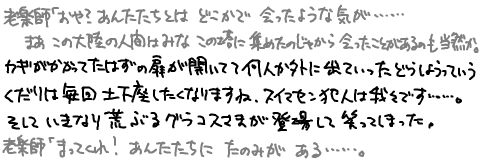 老楽師「おや？あんたたちとは どこかで 会ったような気が……
まあ この大陸の人間はみな この塔に集めたのじゃから 会ったことがあるのも当然か。
カギがかかってたはずの扉が開いてて何人か外に出ていったどうしようっていう
くだりは毎回土下座したくなりますね、スイマセン犯人は我々です……。
そして いきなり荒ぶるグラコスさまが登場して笑ってしまった。
老楽師「まってくれ！ あんたたちに たのみが ある……。